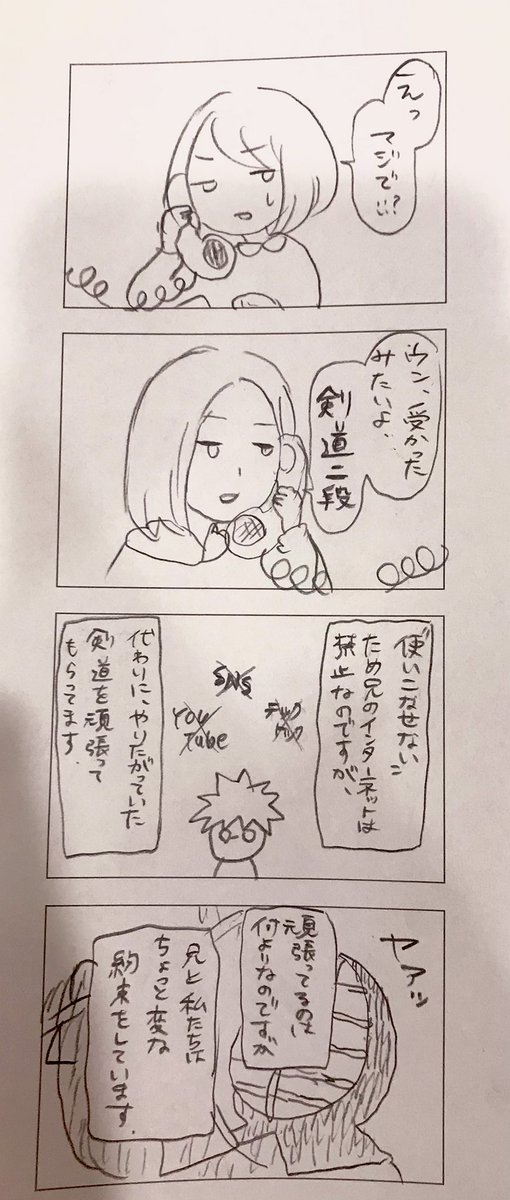 えっ
マジで…!?
ウン、受かった
みたいよ…
剣道二段
使いこなせない
ため兄のインターネットは
禁止なのですが、
SNS
YOU
Tube
チック
トック
代わりに、やりたがっていた
剣道を頑張って
もらってます.
ヤアッ
頑張ってるのは
何よりなのですが
兄と私たちは
ちょっと変な
約束をしています.